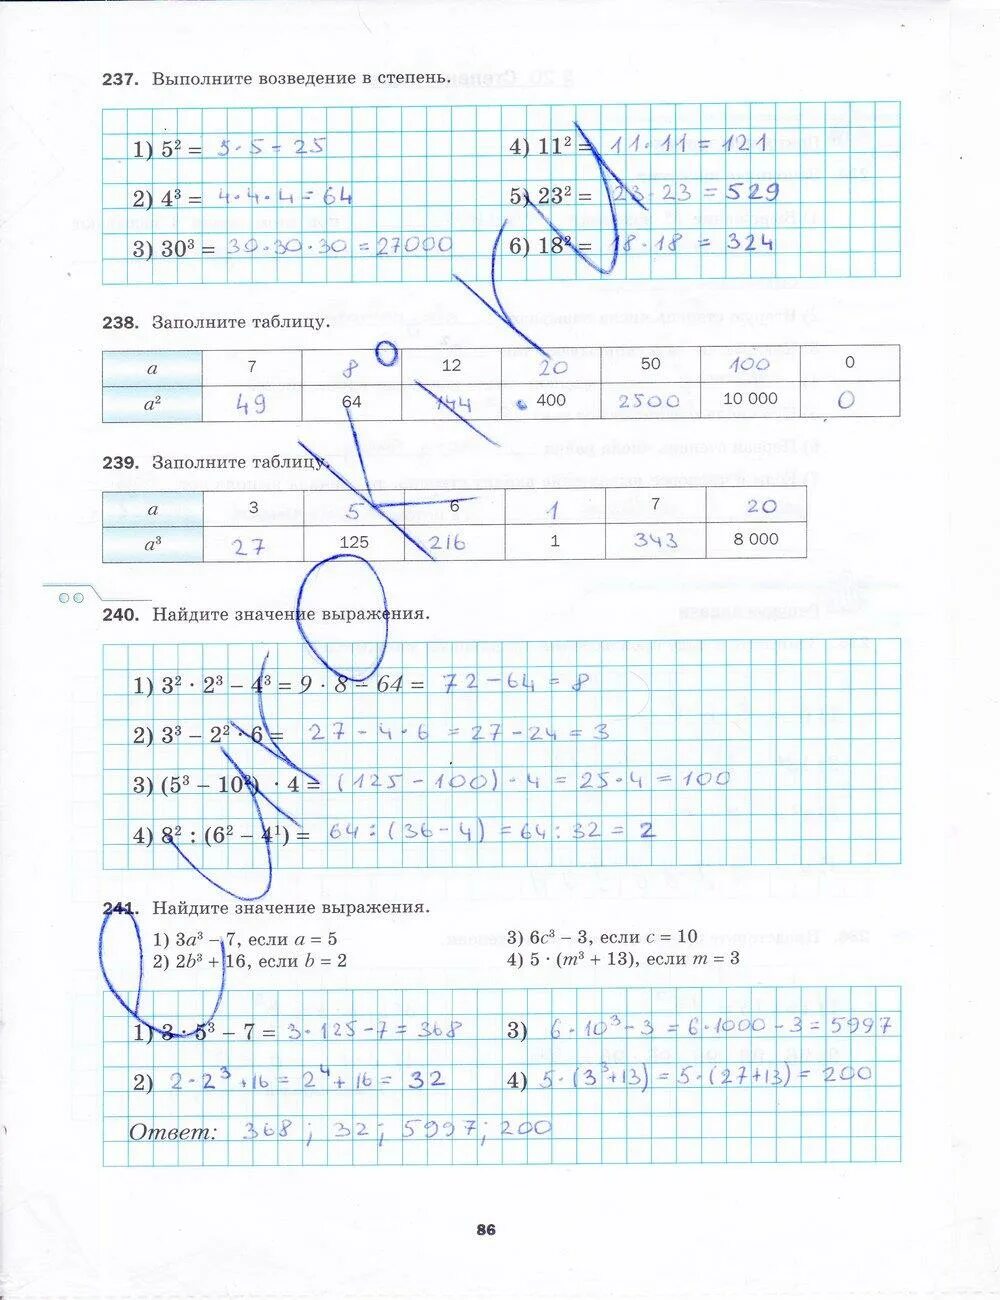 237. Выполните возведение в степень.
1) 5² = 5·5 = 25
4) 11² = 11·11 = 121
2) 4³ = 4·4·4 = 64
5) 23² = 23·23 = 529
3) 30³ = 30·30·30 = 27000
6) 18² = 18·18 = 324
238. Заполните таблицу.
a 7 8 12 20 50 100 0
a² 49 64 144 400 2500 10 000 0
239. Заполните таблицу.
a 3 5 6 1 7 20
a³ 27 125 216 1 343 8 000
240. Найдите значение выражения.
1) 3² · 2³ – 4³ = 9 · 8 – 64 = 72 – 64 = 8
2) 3³ – 2² · 6 = 27 – 4·6 = 27 – 24 = 3
3) (5³ – 10²) · 4 = (125 – 100) · 4 = 25·4 = 100
4) 8² : (6² – 4¹) = 64 : (36 – 4) = 64 : 32 = 2
241. Найдите значение выражения.
1) 3a³ – 7, если a = 5
3) 6c³ – 3, если c = 10
2) 2b³ + 16, если b = 2
4) 5 · (m³ + 13), если m = 3
1) 3 · 5³ – 7 = 3·125–7 = 368
3) 6·10³–3 = 6·1000 – 3 = 5997
2) 2·2³+16 = 2⁴+16 = 32
4) 5·(3³+13) = 5·(27+13) = 200
Ответ: 368; 32; 5997; 200
86